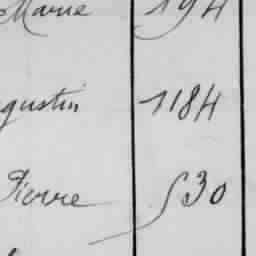 Marie 194
gustin 1184
Pierre 530